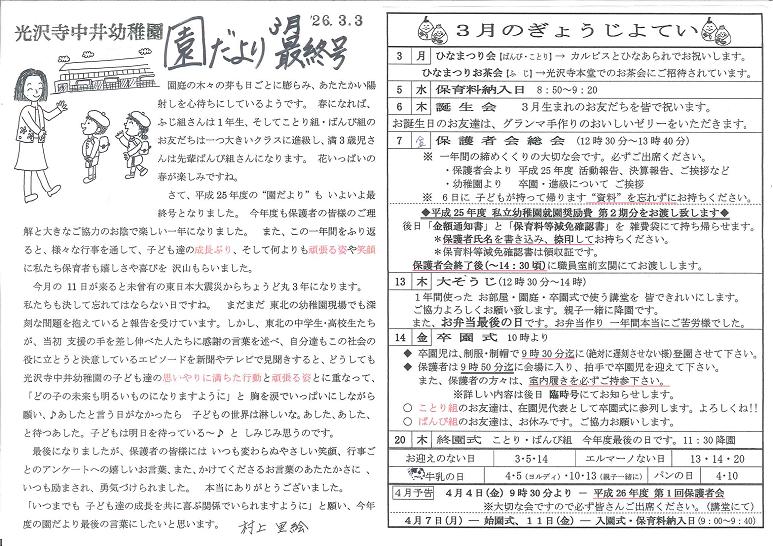 光沢寺中井幼稚園
園だより 3月 最終号
'26.3.3
園庭の木々の芽も日ごとに膨らみ、あたたかい陽
射しを心待ちにしているようです。 春になれば、
ふじ組さんは1年生、そしてことり組・ばんび組の
お友だちは一つ大きいクラスに進級し、満3歳児さ
んは先輩ばんび組さんになります。 花いっぱいの
春が楽しみですね。
さて、平成25年度の“園だより”も いよいよ最
終号となりました。 今年度も保護者の皆様のご理
解と大きなご協力のお陰で楽しい一年になりました。 また、この一年間をふり返
ると、様々な行事を通して、子ども達の成長ぶり、そして何よりも頑張る姿や笑顔
に私たち保育者も嬉しさや喜びを 沢山もらいました。
今月の 11日が来ると未曾有の東日本大震災からちょうど丸3年になります。
私たちも決して忘れてはならない日ですね。 まだまだ 東北の幼稚園現場でも深
刻な問題を抱えていると報告を受けています。しかし、東北の中学生・高校生たち
が、当初 支援の手を差し伸べた人たちに感謝の言葉を述べ、自分達もこの社会の
役に立とうと決意しているエピソードを新聞やテレビで見聞きすると、どうしても
光沢寺中井幼稚園の子ども達の思いやりに満ちた行動と頑張る姿とに重なって、
「どの子の未来も明るいものになりますように」と 胸を涙でいっぱいにしながら
願い、♪あしたと言う日がなかったら 子どもの世界は淋しいな。あした、あした、
と待つあした。子どもは明日を待っている〜♪ と しみじみ思うのです。
最後になりましたが、保護者の皆様には いつも変わらぬやさしい笑顔、行事ご
とのアンケートへの嬉しいお言葉、また、かけてくださるお言葉のあたたかさに 、
いつも励まされ、勇気づけられました。 本当にありがとうございました。
「いつまでも 子ども達の成長を共に喜ぶ関係でいられますように」と願い、今年
度の園だより最後の言葉にしたいと思います。 村上 里絵
3月のぎょうじよてい
3 月 ひなまつり会【ばんび・ことり】→ カルピスとひなあられでお祝いします。
ひなまつりお茶会【ふ じ】→光沢寺本堂でのお茶会にご招待されています。
5 水 保育料納入日 8:50〜9:20
6 木 誕生会 3月生まれのお友だちを皆で祝います。
お誕生日のお友達は、グランマ手作りのおいしいゼリーをいただきます。
7 金 保護者会総会 (12時30分〜13時40分)
※ 一年間の締めくくりの大切な会です。必ずご出席ください。
・保護者会より 平成25年度 活動報告、決算報告、ご挨拶など
・幼稚園より 卒園・進級について ご挨拶
※ 6日に 子どもが持って帰ります“資料”を忘れずにお持ちください。
◆平成25年度 私立幼稚園就園奨励費 第2期分をお渡し致します◆
後日「金額通知書」と「保育料等減免確認書」を 雑費袋にて持ち帰らせます。
*保護者氏名を書き込み、捺印してお持ちください。
*保育料等減免確認書は領収証です。
保護者会終了後(〜14:30頃)に職員室前玄関にてお渡しします。
13 木 大そうじ(12時30分〜14時)
1年間使った お部屋・園庭・卒園式で使う講堂を 皆できれいにします。
ご協力よろしくお願い致します。親子一緒に降園です。
また、お弁当最後の日です。お弁当作り 一年間本当にご苦労様でした。
14 金 卒園式 10時より
◆ 卒園児は、制服・制帽で9時30分迄に(絶対に遅刻させない様)登園させて下さい。
◆ 保護者は9時50分迄に会場に入り、拍手で卒園児を迎えて下さい。
また、保護者の方々は、室内履きを必ずご持参下さい。
※詳しい内容は後日 臨時号にてお知らせします。
○ ことり組のお友達は、在園児代表として卒園式に参列します。よろしくね!!
○ ばんび組のお友達は、お休みです。ご協力お願いします。
20 木 終園式 ことり・ばんび組 今年度最後の日です。11:30降園
お迎えのない日 3・5・14 エルマーノない日 13・14・20
牛乳の日 4・5(ヨルディ)・10・13(親子一緒に) パンの日 4・10
4月予告 4月4日(金)9時30分より − 平成26年度 第1回保護者会
※大切な会ですので必ず皆さんご出席ください。(講堂にて)
4月7日(月)― 始園式、11日(金)― 入園式・保育料納入日(9:00〜9:40)